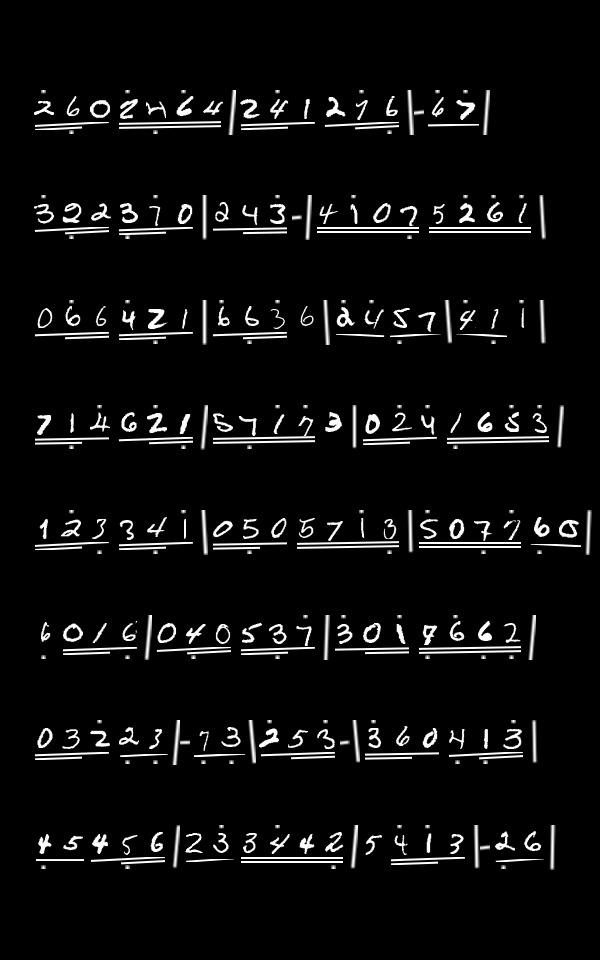 2 6 0 2 4 6 4 | 2 4 1 2 7 6 | - 6 7 |
3 2 2 3 7 0 | 2 4 3 - | 4 1 0 7 5 2 6 1 |
0 6 6 4 2 1 | 6 6 3 6 | 2 4 5 7 | 4 1 1 |
7 1 4 6 2 1 | 5 7 1 7 3 | 0 2 4 1 6 5 3 |
1 2 3 3 4 1 | 0 5 0 5 7 1 3 | 5 0 7 7 6 5 |
6 0 1 6 | 0 4 0 5 3 7 | 3 0 1 7 6 6 2 |
0 3 2 2 3 | - 7 3 | 2 5 3 - | 3 6 0 4 1 3 |
4 5 4 5 6 | 2 3 3 4 4 2 | 5 4 1 3 | - 2 6 |